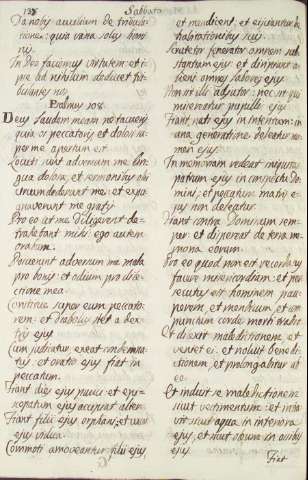 125 Sabbato
Da nobis auxilium de tribula-
tione: quia vana salus homi
nis
In Deo faciemus virtutem: et i-
pse ad nihilum deducet tri-
bulantes nos
Psalmus 108
Deus laudem meam ne tacueris:
quia os peccatoris, et dolosi su-
per me apertum est
Locuti sunt adversum me lin-
gua dolosa, et sermonibus odii
circumdederunt me: et expu-
gnaverunt me gratis
Pro eo ut me diligerent de-
trahebant mihi: ego autem
orabam
Posuerunt adversum me mala
pro bonis: et odium pro dile-
ctione mea
Constitue super eum peccato-
rem: et diabolus stet a dex-
tris ejus
Cum judicatur, exeat condemna-
tus, et oratio ejus fiat in
peccatum
Fiant dies ejus pauci: et epis-
copatum ejus accipiat alter
Fiant filii ejus orphani: et uxor
ejus vidua
Commoti amoveantur filii ejus,
et mendicent, et ejiciantur de
habitationibus suis
Scrutetur fenerator omnem sub-
stantiam ejus: et diripiant a-
lieni omnes labores ejus
Non sit illi adjutor: nec sit qui
misereatur pupillis ejus
Fiant nati ejus in interitum: in
una generatione deleatur no-
men ejus
In memoriam redeat iniquitas
patrum ejus in conspectu Do-
mini: et peccatum matris e-
jus non deleatur
Fiant contra Dominum sem-
per: et dispereat de terra me-
moria eorum
Pro eo quod non est recordatus
facere misericordiam: et per-
secutus est hominem inop-
perem, et mendicum, et com
punctum corde mortificare
Et dilexit maledictionem, et
veniet ei: et noluit benedi-
ctionem, et prolongabitur ab
eo
Et induit se maledictionem
sicut vestimentum: et intra-
vit sicut aqua in interiora
ejus, et sicut oleum in ossibus
ejus
Fiat